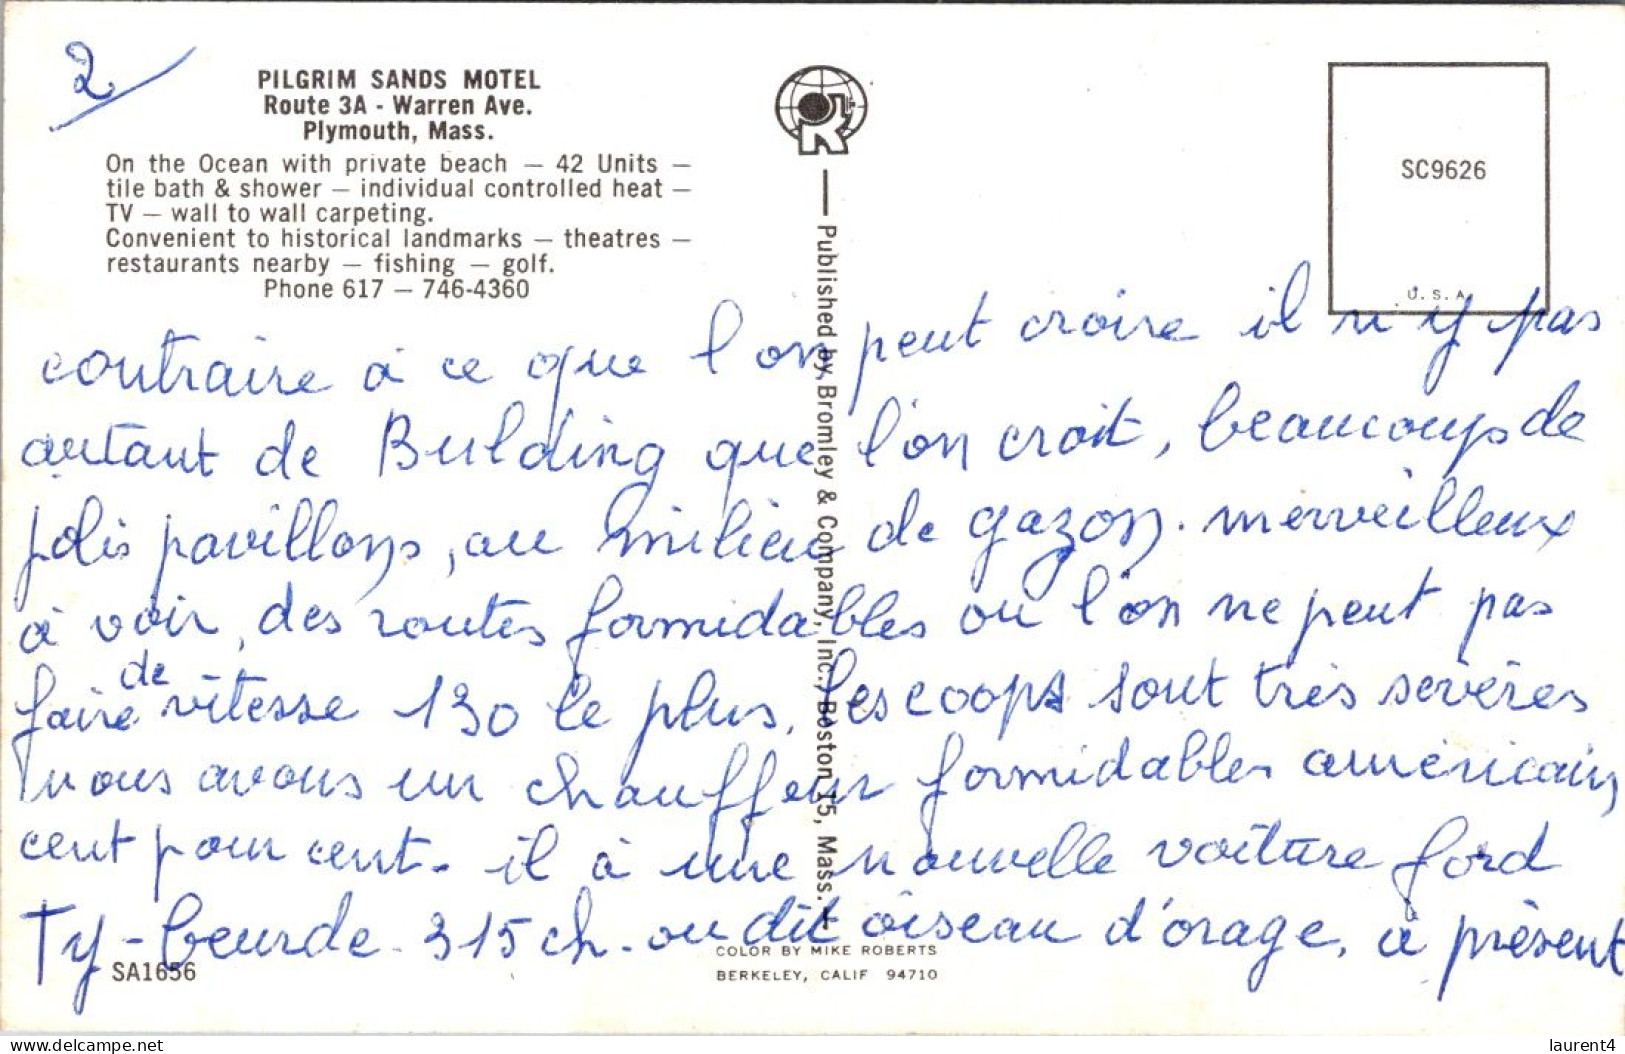 2
PILGRIM SANDS MOTEL
Route 3A - Warren Ave.
Plymouth, Mass.
On the Ocean with private beach — 42 Units —
tile bath & shower — individual controlled heat —
TV — wall to wall carpeting.
Convenient to historical landmarks — theatres —
restaurants nearby — fishing — golf.
Phone 617 — 746-4360
Published by Bromley & Company, Inc., Boston 15, Mass.
SC9626
U.S.A.
contraire à ce que l'on peut croire il n'y pas
autant de Bulding que l'on croit, beaucoups de
jolis pavillons, au milieu de gazon. merveilleux
à voir, des routes formidables ou l'on ne peut pas
faire de vitesse 130 le plus, les coops sont très sevères
nous avons un chauffeur formidables américain,
cent pour cent. il à une nouvelle voiture ford
Ty-beurde. 315 ch. ou dit oiseau d'orage, à présent
COLOR BY MIKE ROBERTS
BERKELEY, CALIF 94710
SA1656
delcampe.net
laurent4